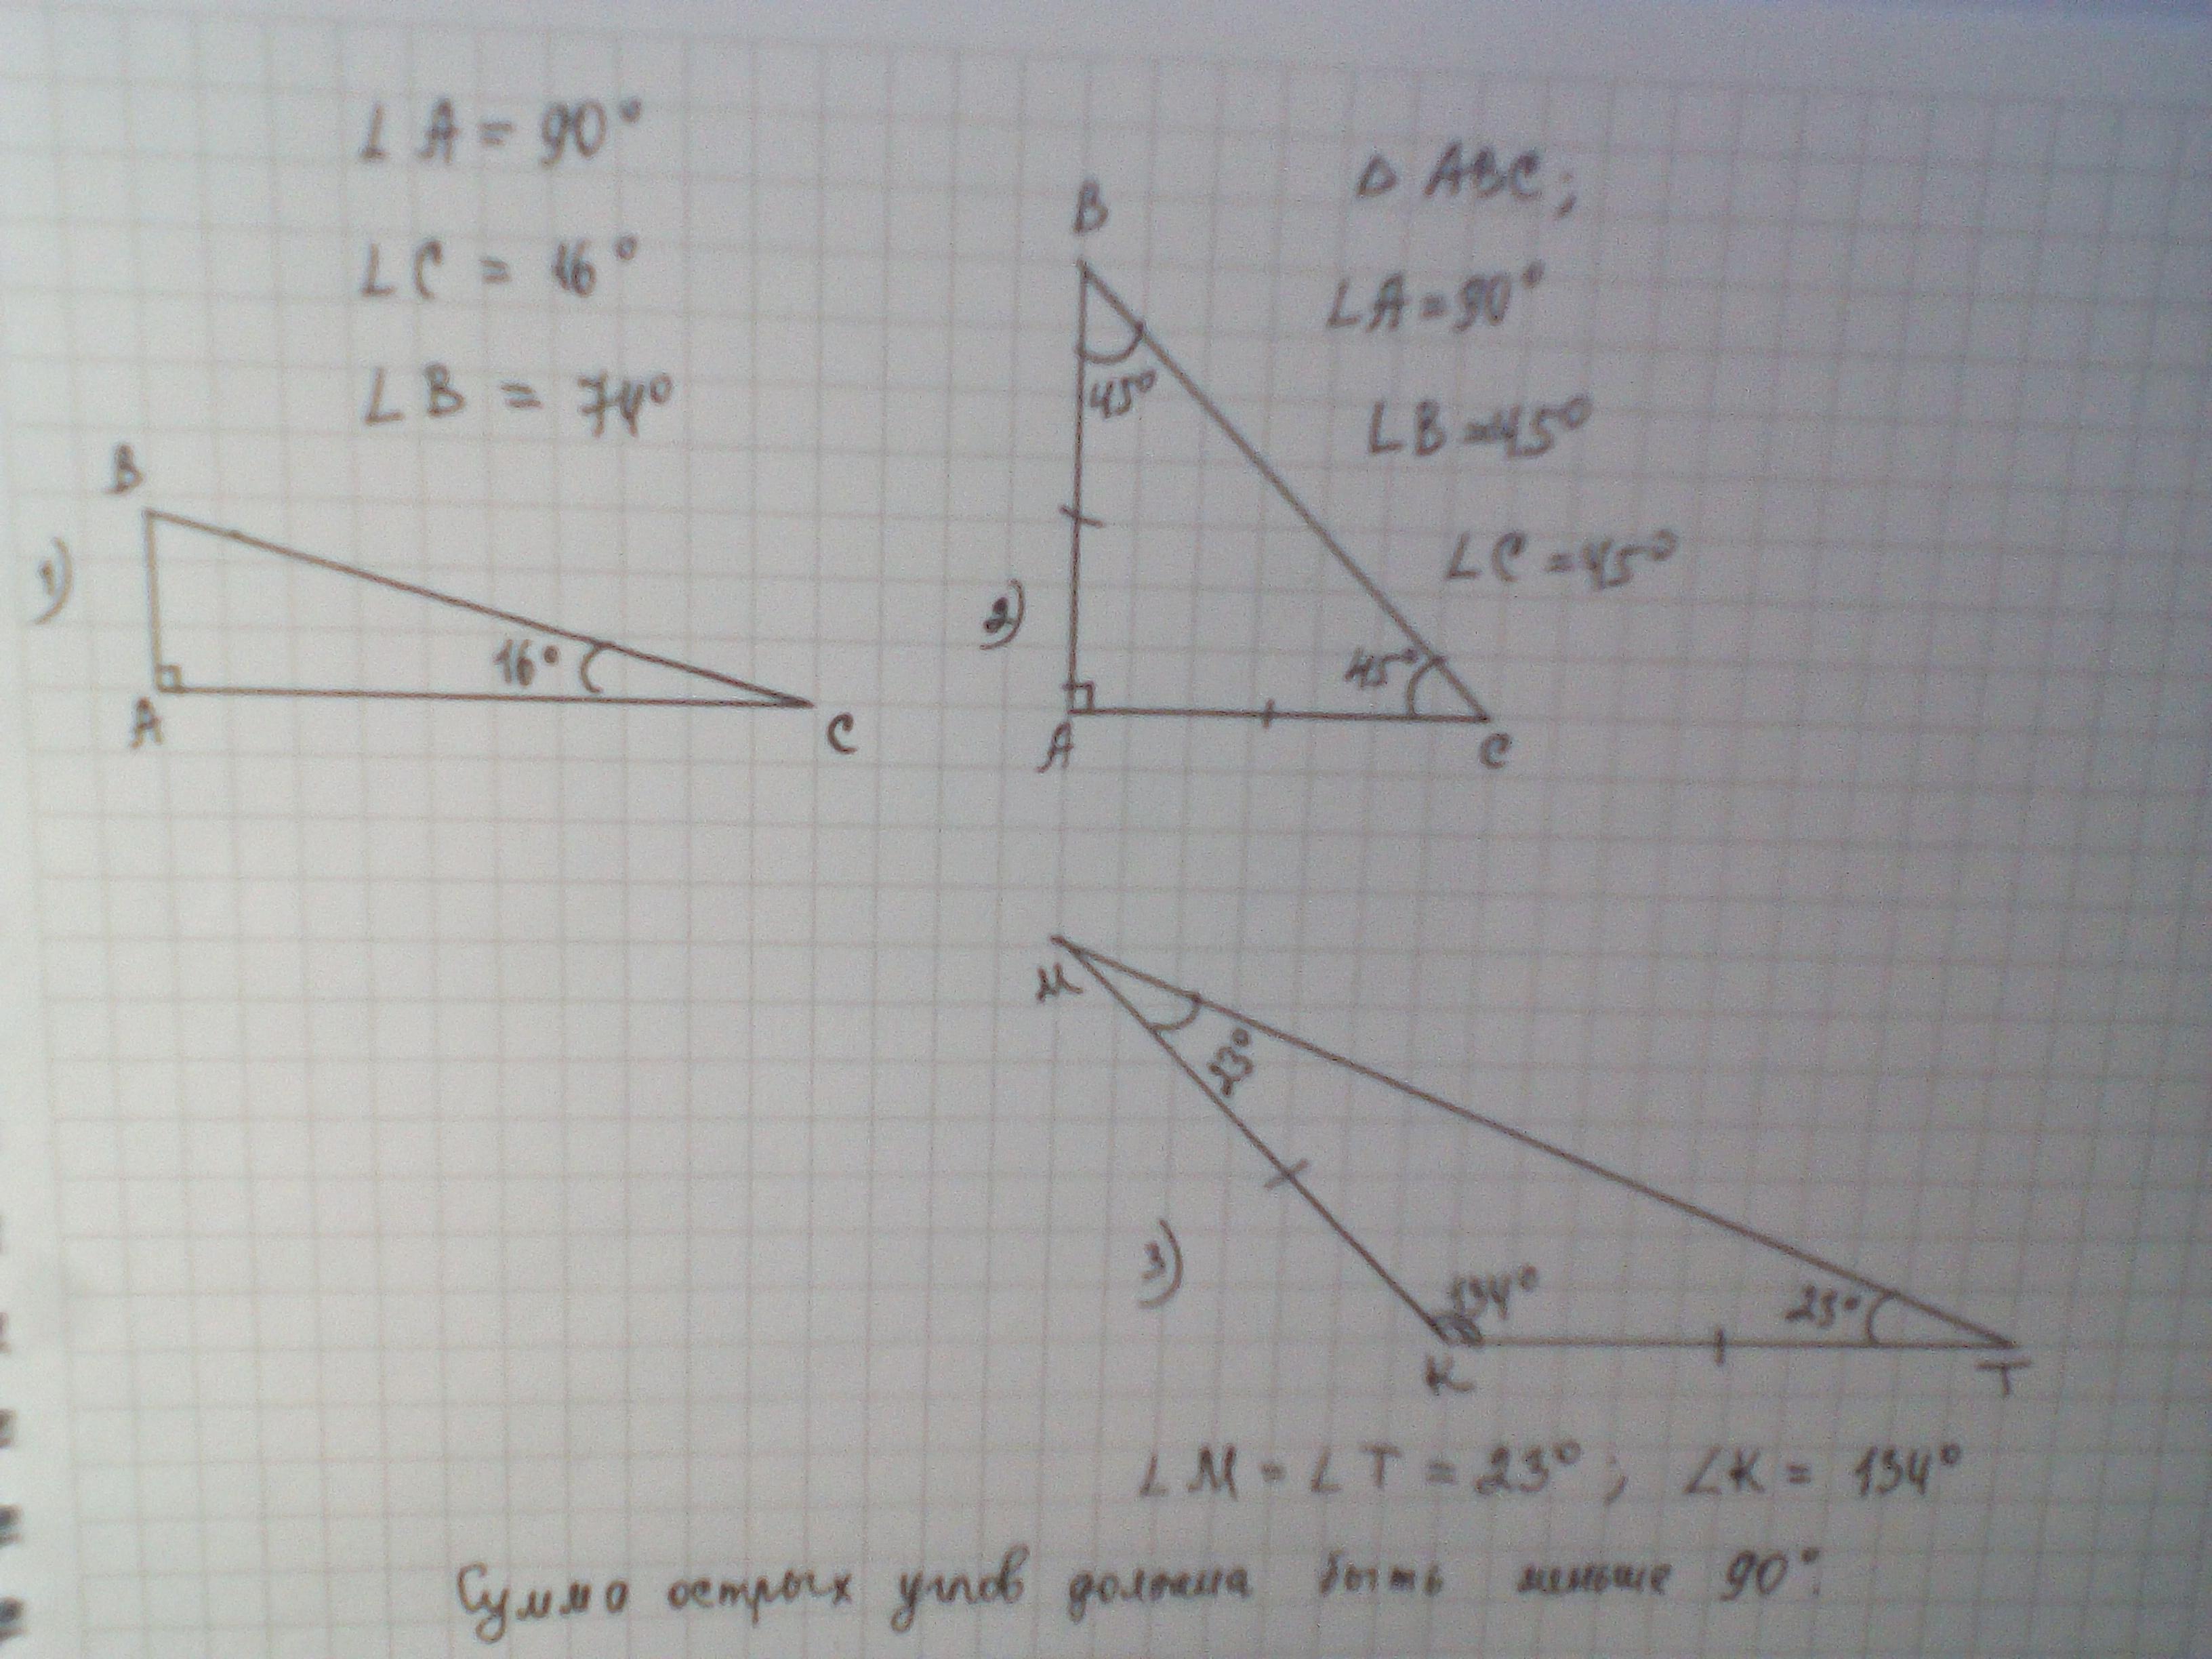 ∠A = 90°
∠C = 16°
∠B = 74°
1)
B
16°
A
C
Δ ABC;
∠A = 90°
∠B = 45°
∠C = 45°
2)
B
45°
45°
A
C
3)
M
23°
134°
23°
K
T
∠M = ∠T = 23°; ∠K = 134°
Сумма острых углов должна быть меньше 90°.